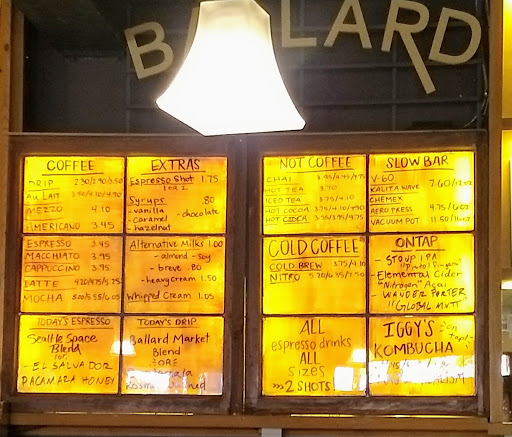 BALLARD
COFFEE
DRIP 2.30/2.90/3.50
AU LAIT 3.50/4.10/4.90
MEZZO 4.10
AMERICANO 3.45
ESPRESSO 3.45
MACCHIATO 3.95
CAPPUCCINO 3.95
LATTE
MOCHA
TODAY'S ESPRESSO
Seattle Space
Blend
for
- EL SALVADOR
PACAMARA HONEY
EXTRAS
Espresso Shot 1.75
1 or 2
Syrups .80
- vanilla
- caramel - chocolate
- hazelnut
Alternative Milks 1.00
- almond - soy
- breve .80
- heavy cream 1.50
Whipped Cream 1.05
TODAY'S DRIP
Ballard Market
Blend
NOT COFFEE
CHAI
HOT TEA
ICED TEA 3.75/4.10
HOT COCOA
HOT CIDER
COLD COFFEE
COLD BREW 3.75/4.10
NITRO
ALL
espresso drinks
ALL
sizes
2 SHOTS
SLOW BAR
V-60
KALITA WAVE 7.60/12oz
CHEMEX
AERO PRESS 4.75/6oz
VACUUM POT 11.50/16oz
ONTAP
- STOUP IPA
- Elemental Cider
"Nitrogen" Acai
- WANDER PORTER
"GLOBAL MUTT"
IGGY'S on tap!
KOMBUCHA